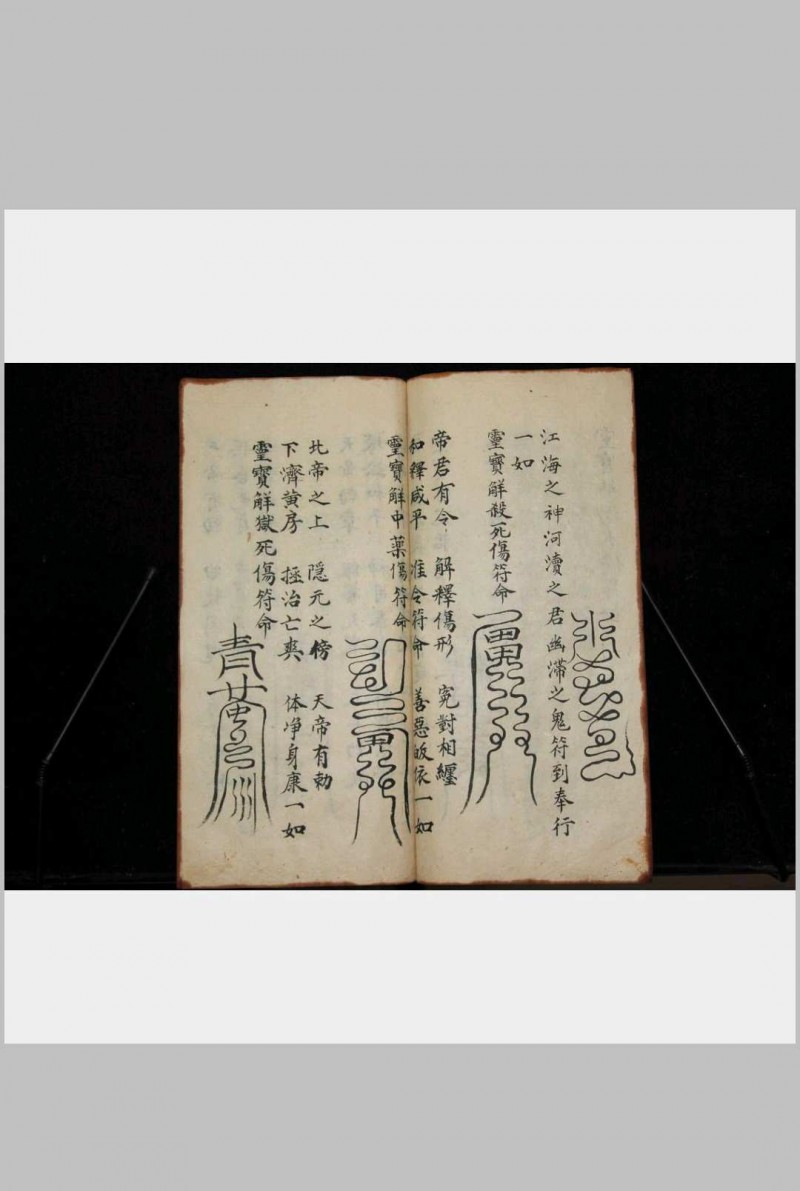 江海之神河瀆之君幽滯之鬼符到奉行
一如
靈寶解殺死傷符命
帝君有令 解釋傷形 冤對相纏
和釋咸平 准令符命 善惡皈依一如
靈寶解中藥傷符命
北帝之上 隐元之傍 天帝有勅
下濟黄房 拯治亡𡙡 体净身康一如
靈寶解獄死傷符命